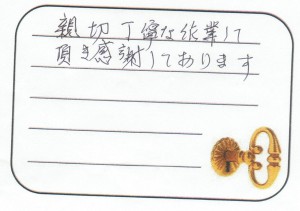 親切丁寧な作業して
頂き感謝しております